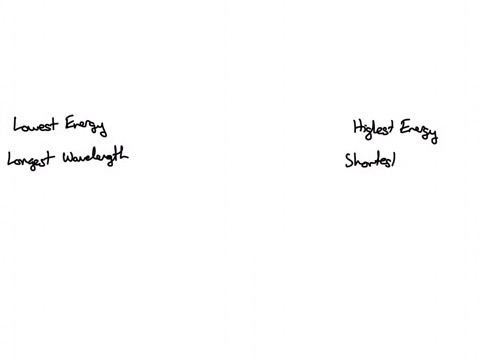 Lowest Energy
Highest Energy
Longest Wavelength
Shortest